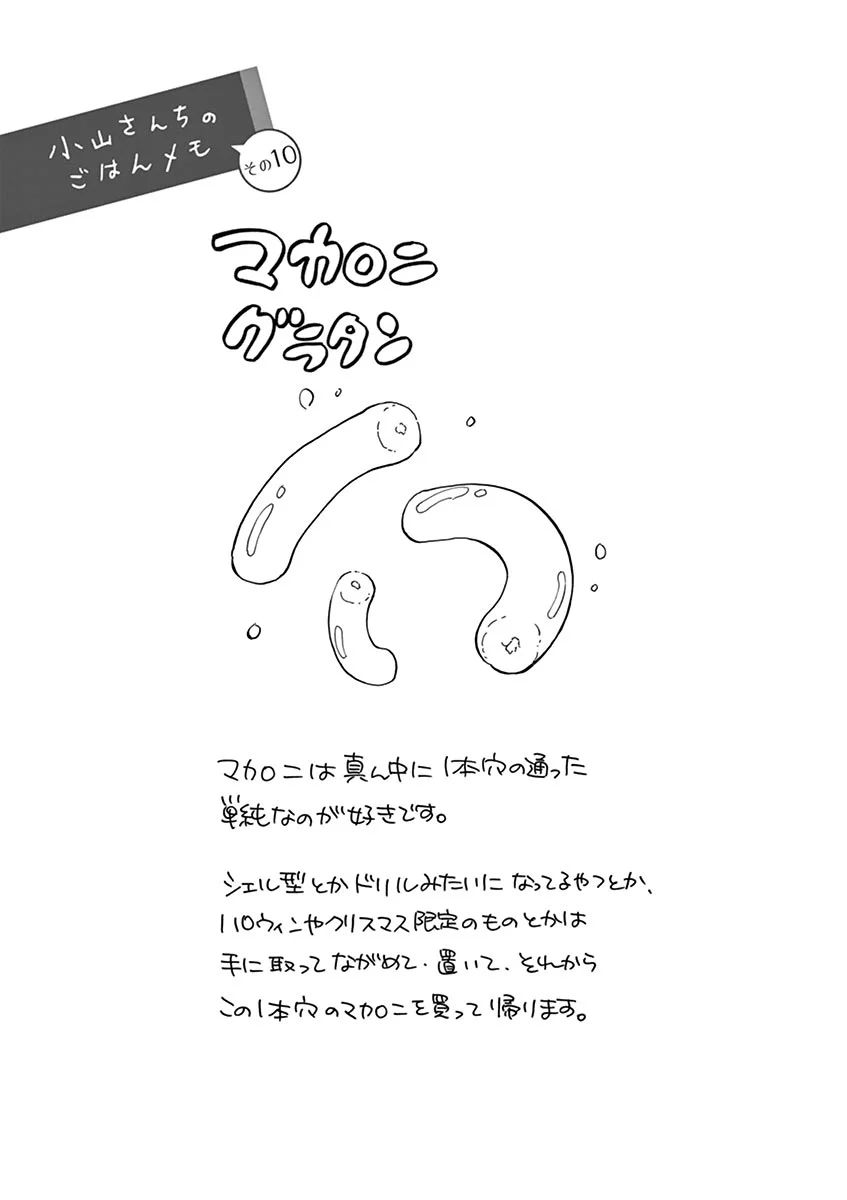 小山さんちの
ごはんメモ
その10
マカロニ
グラタン
マカロニは真ん中に1本穴の通った
単純なのが好きです。
シェル型とかドリルみたいになってるやつとか、
ハロウィンやクリスマス限定のものとかは
手に取ってながめて、置いて、それから
この1本穴のマカロニを買って帰ります。